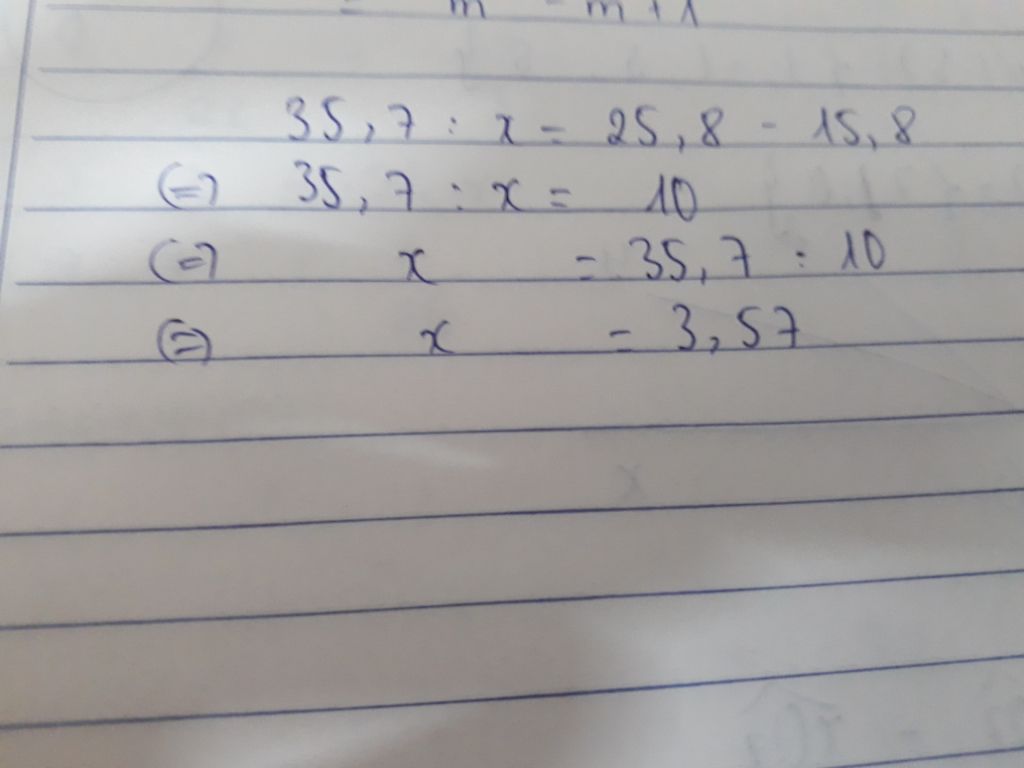 = m - m + 1
35,7 : x = 25,8 - 15,8
(=) 35,7 : x = 10
(=) x = 35,7 : 10
(=) x = 3,57